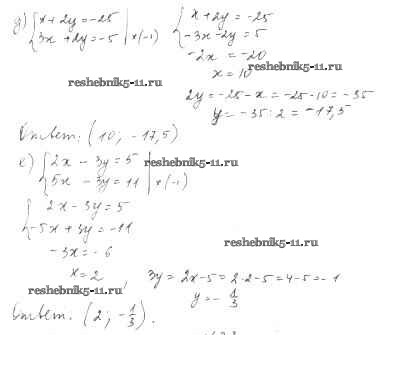 д) { x + 2y = -25
3x + 2y = -5 | × (-1)
{ x + 2y = -25
-3x - 2y = 5
-2x = -20
x = 10
2y = -25 - x = -25 - 10 = -35
y = -35 : 2 = -17,5
reshebnik5-11.ru
reshebnik5-11.ru
Ответ: (10; -17,5)
е) { 2x - 3y = 5
5x - 3y = 11 | × (-1)
reshebnik5-11.ru
{ 2x - 3y = 5
-5x + 3y = -11
-3x = -6
x = 2
reshebnik5-11.ru
3y = 2x - 5 = 2·2 - 5 = 4 - 5 = -1
y = - 1/3
reshebnik5-11.ru
Ответ: (2; -1/3).